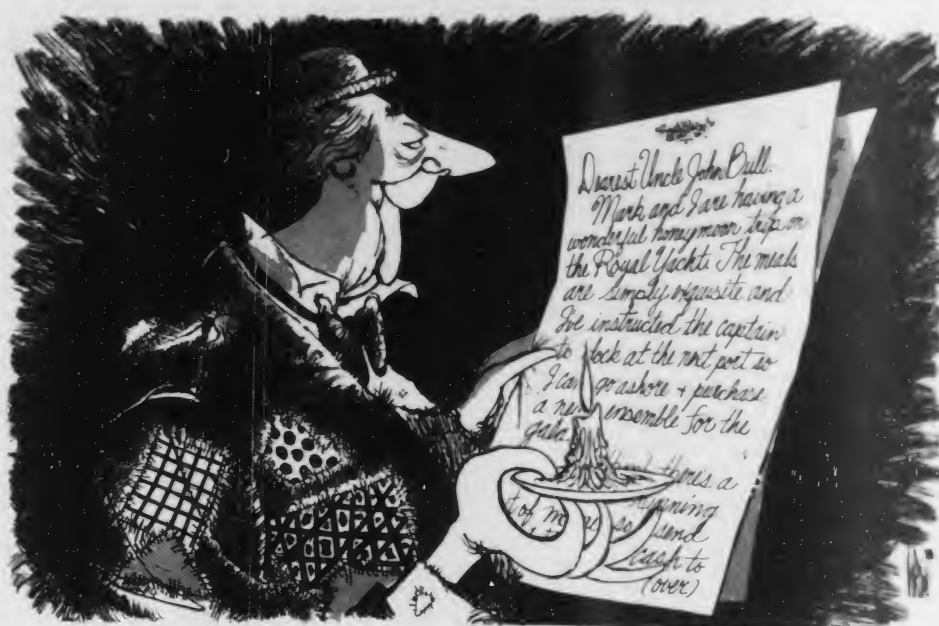 Dearest Uncle John Bull:
Mark and I are having a
wonderful honeymoon trip on
the Royal Yacht. The meals
are simply exquisite and
I've instructed the captain
to dock at the next port so
I can go ashore + purchase
a new ensemble for the
gala.
there's a
of so send
cash to
(over)